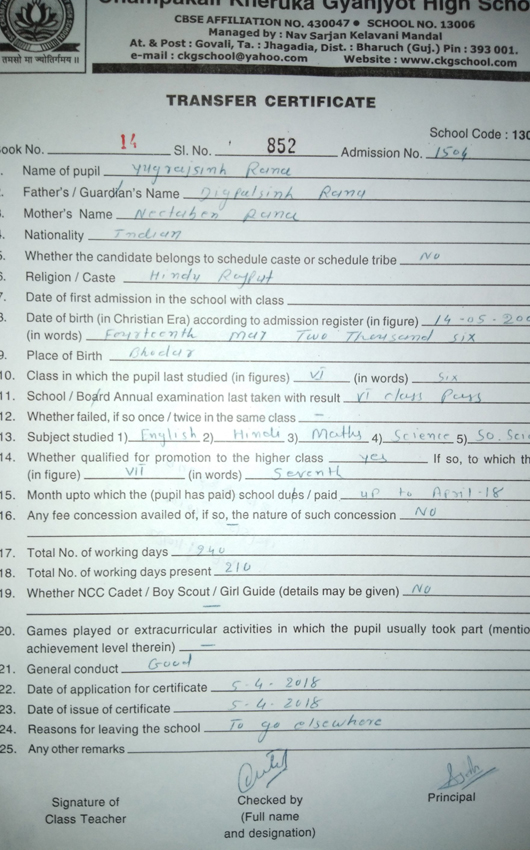 Champakali Kheruka Gyanjyot High Scho
CBSE AFFILIATION NO. 430047 ● SCHOOL NO. 13006
Managed by : Nav Sarjan Kelavani Mandal
At. & Post : Govali, Ta. : Jhagadia, Dist. : Bharuch (Guj.) Pin : 393 001.
e-mail : ckgschool@yahoo.com Website : www.ckgschool.com
तमसो मा ज्योतिर्गमय ॥
TRANSFER CERTIFICATE
School Code : 130
ook No. 14 Sl. No. 852 Admission No. 1504
Name of pupil Yugrajsinh Rana
Father's / Guardian's Name Digpalsinh Rana
Mother's Name Neetaben Rana
Nationality Indian
Whether the candidate belongs to schedule caste or schedule tribe No
Religion / Caste Hindu Rajput
Date of first admission in the school with class
Date of birth (in Christian Era) according to admission register (in figure) 14-05-200
(in words) Fourteenth May Two Thousand Six
9. Place of Birth
10. Class in which the pupil last studied (in figures) VI (in words) Six
11. School / Board Annual examination last taken with result VI class Pass
12. Whether failed, if so once / twice in the same class –
13. Subject studied 1) English 2) Hindi 3) Maths 4) Science 5) So. Sci
14. Whether qualified for promotion to the higher class yes If so, to which th
(in figure) VII (in words) Seventh
15. Month upto which the (pupil has paid) school dues / paid up to April-18
16. Any fee concession availed of, if so, the nature of such concession No
17. Total No. of working days 240
18. Total No. of working days present 210
19. Whether NCC Cadet / Boy Scout / Girl Guide (details may be given) No
20. Games played or extracurricular activities in which the pupil usually took part (mentio
achievement level therein) –
21. General conduct Good
22. Date of application for certificate 5-4-2018
23. Date of issue of certificate 5-4-2018
24. Reasons for leaving the school To go elsewhere
25. Any other remarks
Signature of
Class Teacher
Checked by
(Full name
and designation)
Principal